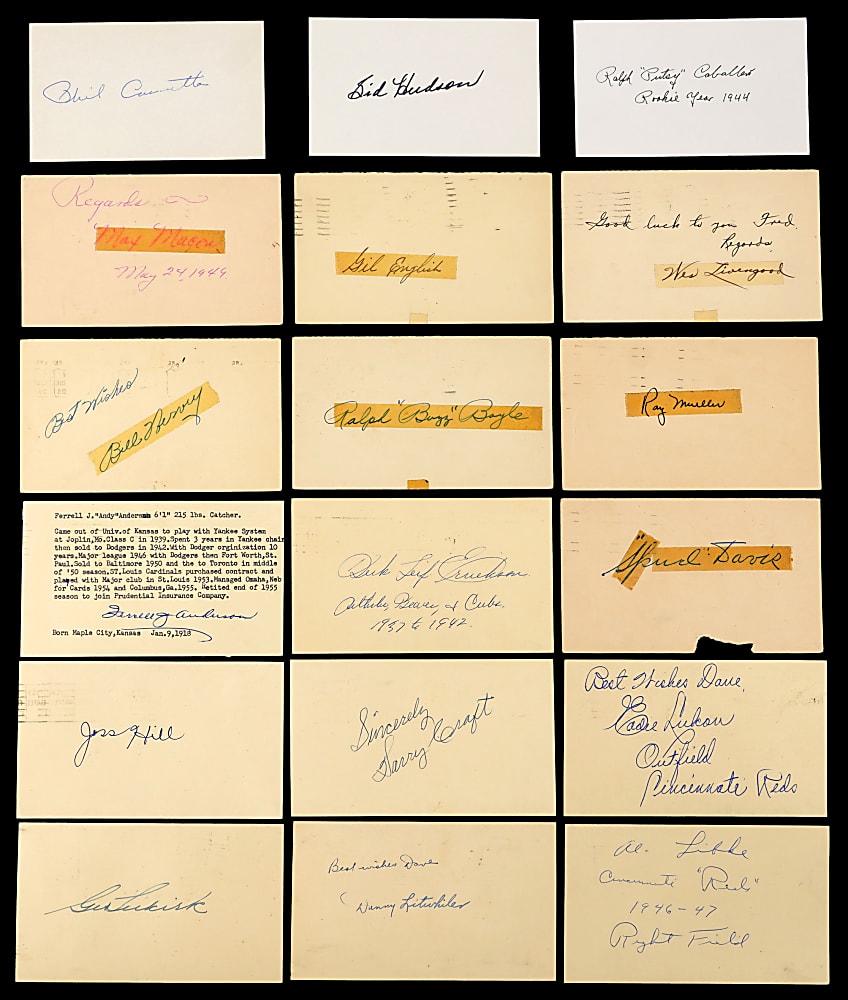 Phil Cavarretta
Sid Hudson
Ralph "Putsy" Caballero
Rookie Year 1944
Regards
Max Macon
May 24, 1949.
Gil English
Good luck to you Fred.
Regards
Wes Livengood
Best Wishes
Bill
Ralph "Buzz" Boyle
Ray Mueller
Ferrell J."Andy"Anderson 6'1" 215 lbs. Catcher.
Came out of Univ.of Kansas to play with Yankee System
at Joplin,Mo.Class C in 1939.Spent 3 years in Yankee chain
then sold to Dodgers in 1942.With Dodger orginization 10
years.Major league 1946 with Dodgers then Fort Worth,St.
Paul.Sold to Baltimore 1950 and the to Toronto in middle
of '50 season.ST.Louis Cardinals purchased contract and
played with Major club in St.Louis 1953.Managed Omaha,Neb
for Cards 1954 and Columbus,Ga.1955. Retited end of 1955
season to join Prudential Insurance Company.
Ferrell J Anderson
Born Maple City,Kansas Jan.9,1918
Dick Leif Erickson
& Cubs.
1937 to 1942.
"Spud" Davis
Jess Hill
Sincerely
Harry Craft
Best Wishes Dave,
Eddie Lukon
Outfield
Cincinnati Reds
Best wishes Dave
Danny Litwhiler
Al. Libke
Cincinnati "Reds"
1946-47
Right Field